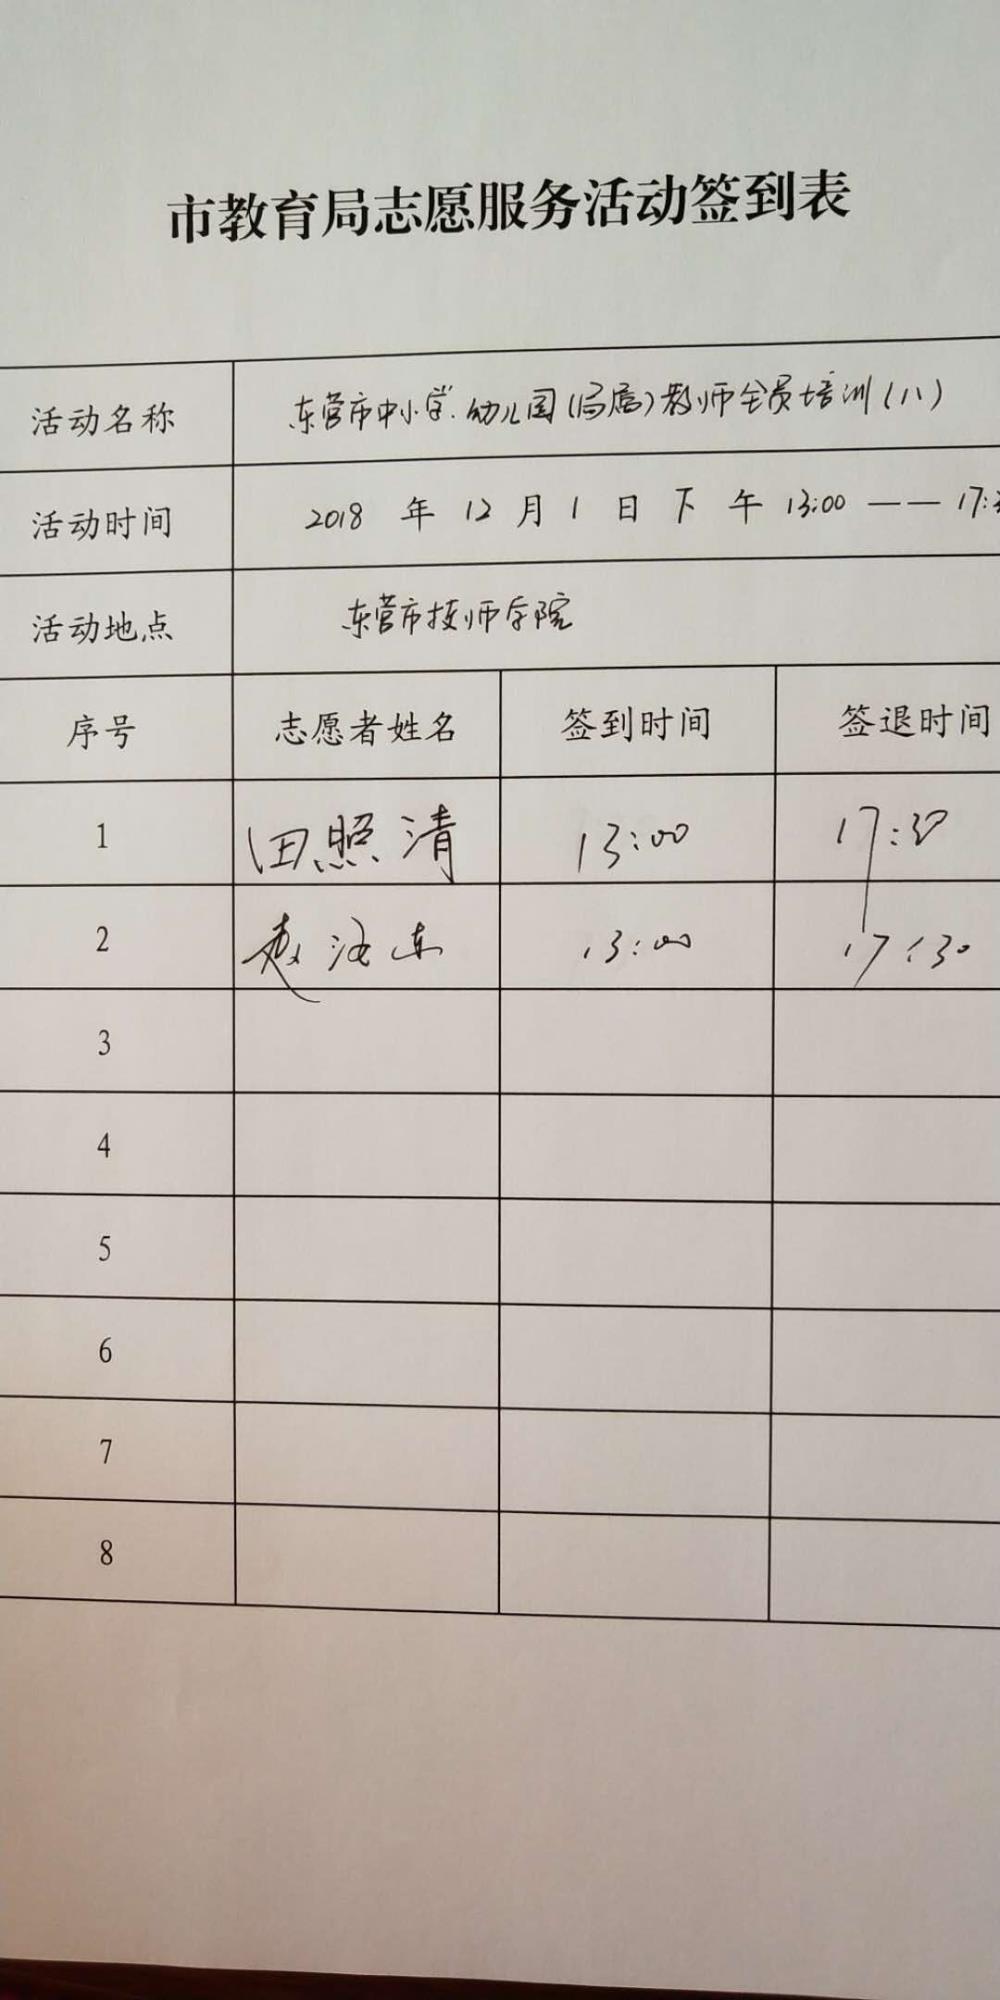 市教育局志愿服务活动签到表
活动名称 东营市中小学、幼儿园(局属)教师全员培训(八)
活动时间 2018 年 12 月 1 日 下 午 13:00 —— 17:3
活动地点 东营市技师学院
序号 志愿者姓名 签到时间 签退时间
1 田照清 13:00 17:30
2 赵 东 13:00 17:30
3
4
5
6
7
8